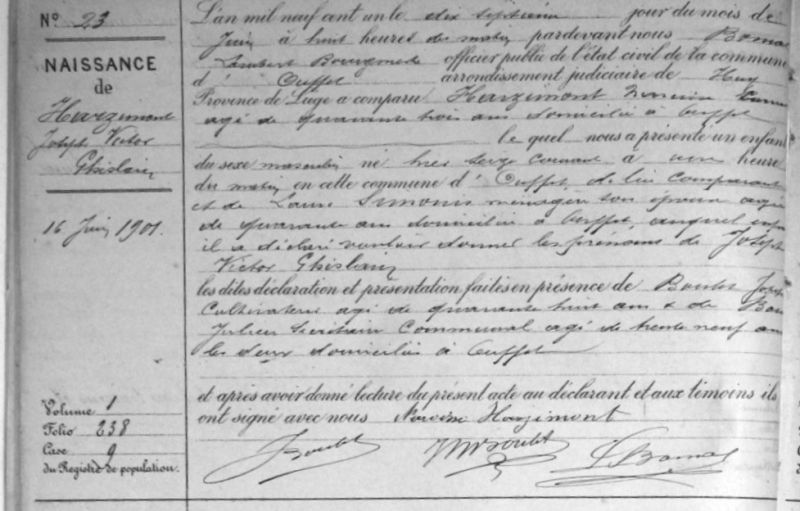 N° 23
NAISSANCE
de
Harzimont
Joseph Victor
Ghislain
16 Juin 1901.
Volume 1
Folio 238
Case 9
du Registre de population.
L'an mil neuf cent un le dix septième jour du mois de
Juin à huit heures du matin pardevant nous
Lambert officier public de l'état civil de la commune
d' Ouffet arrondissement judiciaire de Huy
Province de Liége a comparu Harzimont Narcisse
agé de quarante trois ans domicilié à Ouffet
le quel nous a présenté un enfant
du sexe masculin né hier seize courant à une heure
du matin en cette commune d' Ouffet, de lui comparant
et de Laure Simonis ménagère son épouse agée
de quarante ans domiciliée à Ouffet auquel enfant
il a déclaré vouloir donner les prénoms de Joseph
Victor Ghislain
les dites déclaration et présentation faites en présence de Joseph
Cultivateur agé de quarante huit ans & de
Julien Secrétaire Communal agé de trente neuf ans
les deux domiciliés à Ouffet
et après avoir donné lecture du présent acte au déclarant et aux témoins ils
ont signé avec nous Narcisse Harzimont